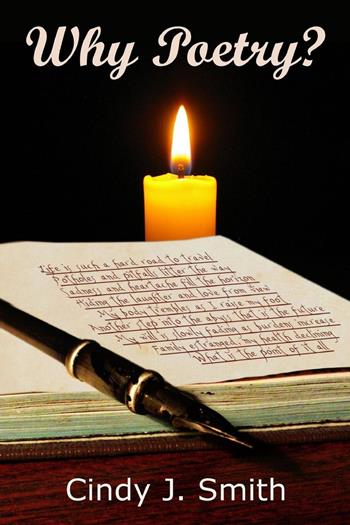 Why Poetry?
Life is such a hard road to travel
Potholes and pitfall litter the way
Sadness and heartache fill the horizon
Hiding the laughter and love from view
My body trembles as I raise my foot
Another step into the abyss that is the future
My will is slowly fading as burdens increase
Family estranged, my health declining
What is the point of it all
Cindy J. Smith